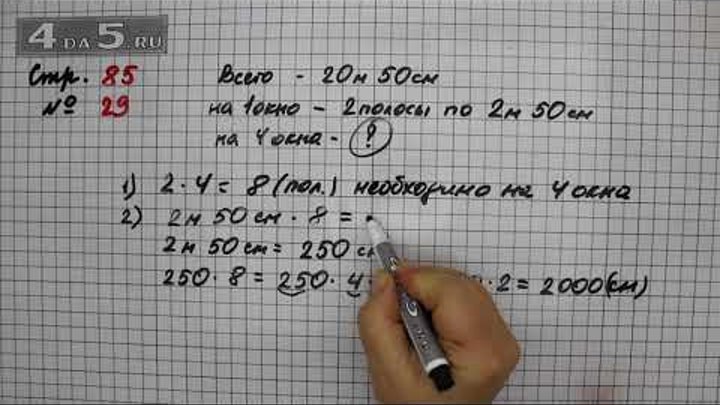 4DA5.RU
Стр. 85
№ 29
Всего - 20м 50см
на 1окно - 2 полосы по 2м 50см
на 4 окна - ?
1) 2 · 4 = 8 (пол.) необходимо на 4 окна
2) 2м 50см · 8 =
2м 50см = 250 с
250 · 8 = 250 · 4 · 2 = 2000(см)